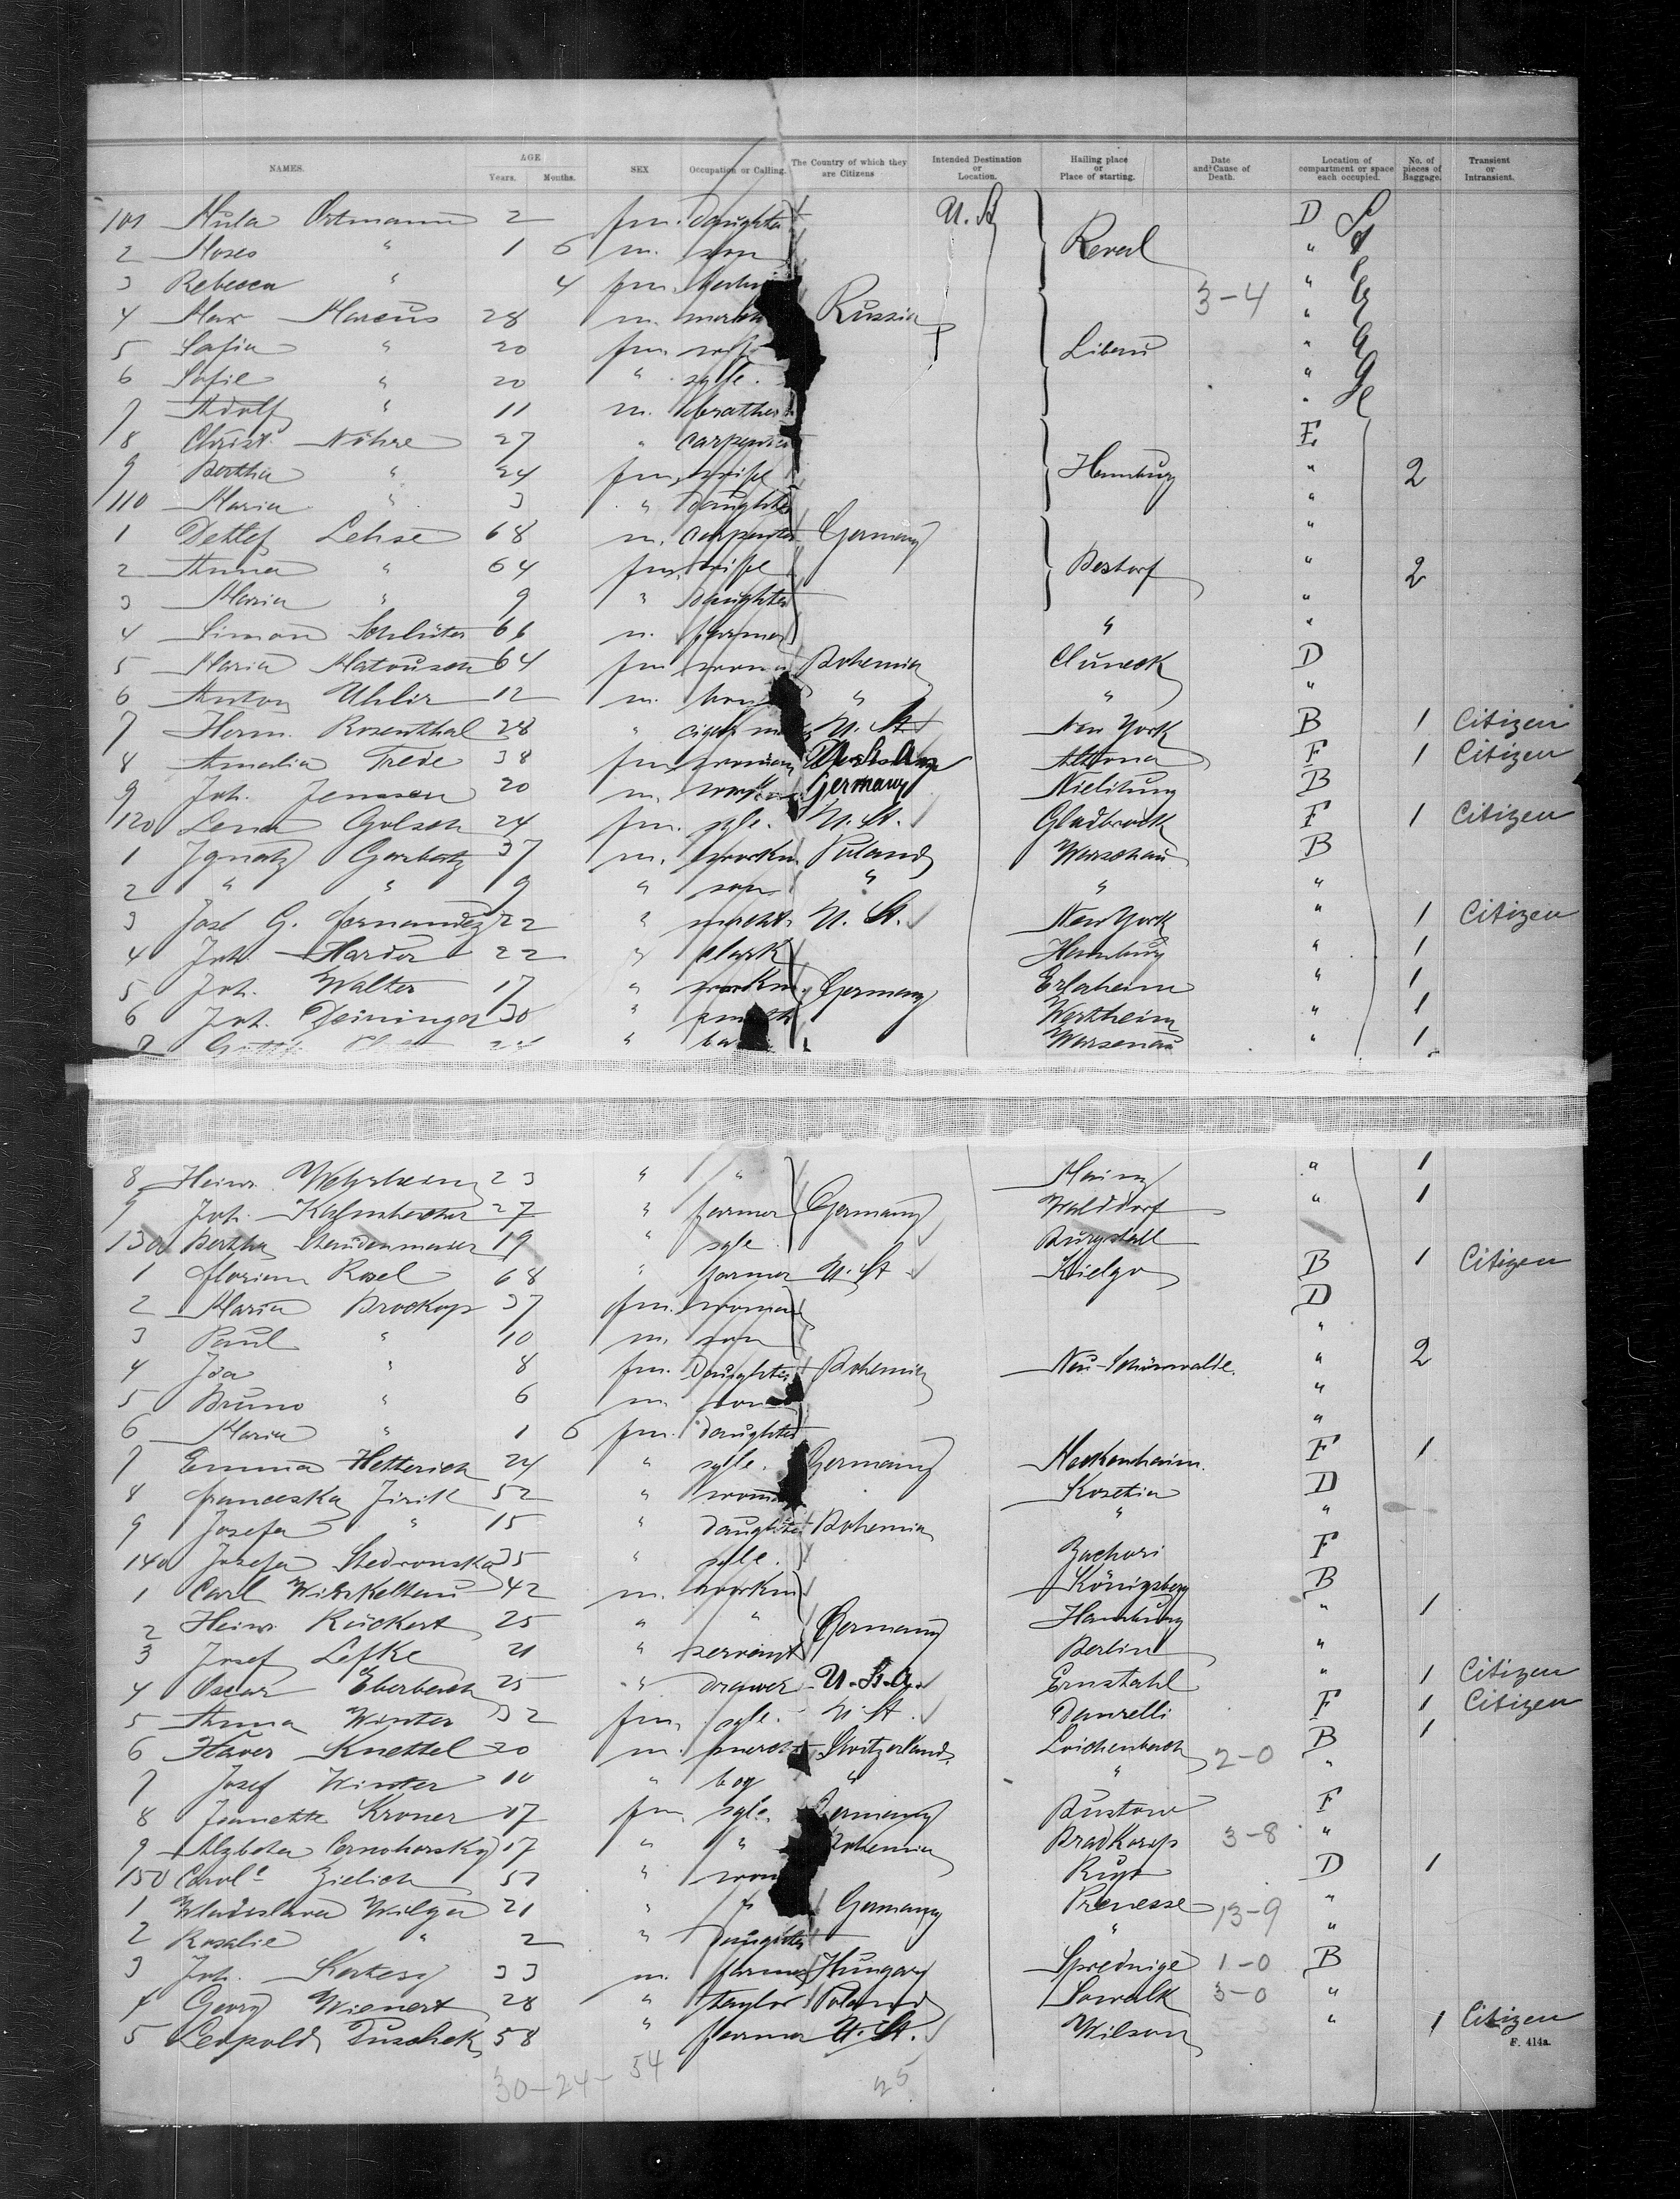 NAMES. AGE Years. Months. SEX Occupation or Calling. The Country of which they are Citizens Intended Destination or Location. Hailing place or Place of starting. Date and Cause of Death. Location of compartment or space each occupied. No. of pieces of Baggage. Transient or Intransient.
101 Ortmann 2 fm. Daughter U. St Reval D
2 Moses " 1 6 m. son "
3 Rebecca " 4 fm. "
4 Max Marcus 28 m. Russia Libau 3-4 "
5 Sofia " 20 fm. "
6 Sofie " 20 " sgle. "
7 Adolf " 11 m. brother "
8 Christ. Nöhre 27 " carpenter Hamburg E
9 Bertha " 24 fm. wife " 2
110 Maria " 3 " daughter "
1 Detlef Lehse 68 m. carpenter Germany Bestorf "
2 Anna " 64 fm. wife " 2
3 Maria " 9 " Daughter "
4 Simon Schlüter 66 m. farmer " "
5 Maria Matousch 64 fm woman Bohemia Cluneck D
6 Anton Uhlir 12 m. " " "
7 Herm. Rosenthal 28 " U. St New York B 1 Citizen
8 Amalia Trede 38 fm woman U.S.A. Altona F 1 Citizen
9 Joh. Jensen 20 m. Germany B
120 Lena Golsch 24 fm. sgle. U. St. Gladbrook F 1 Citizen
1 Ignatz Garbatz 37 m. workm Poland Warschau B
2 " " 9 " son " " "
3 José G. Fernandez 22 " mercht. U. St. New York " 1 Citizen
4 Joh. Harder 22 " clerk Germany Hamburg " 1
5 Joh. Walter 17 " workm. Erlerheim " 1
6 Joh. Deininger 30 " smith Wertheim " 1
7 " " 1
8 Heinr. Wehrheim 23 " " Germany Mainz " 1
9 Joh. 27 " farmer Walddorf " 1
130 Bertha Staudenmaier 19 " sgle Burgstall
1 Florian Rosel 68 " farmer U. St Kielgo B 1 Citizen
2 Maria Prockop 37 fm. woman Bohemia Neu-Schönwalde. D
3 Paul " 10 m. son "
4 Ida " 8 fm. Daughter " 2
5 Bruno " 6 m. son "
6 Maria " 1 6 fm. daughter "
7 Emma Hetterich 24 " sgle. Germany Nackenheim. F 1
8 Franceska Jirik 52 " woman Bohemia Kosetia D
9 Josefa " 15 " daughter " "
140 Josefa Stedronska 35 " sgle. Zachori F
1 Carl 42 m. workm Germany Königsberg B
2 Heinr. Rückert 25 " " Hamburg " 1
3 Josef Lefke 21 " servant Berlin "
4 Oscar Eberbach 25 " drawer U.S.A. Ernstahl " 1 Citizen
5 Anna Winter 32 fm. sgle. U. St. Danrelli F 1 Citizen
6 Xaver Knettel 20 m. mercht Switzerland. Loichenbach 2-0 B 1
7 Josef Winter 10 " boy " " "
8 Jeanette Kroner 17 fm. sgle. Germany Bustow F
9 Alzbeta Cernohorsky 17 " " Bohemia Bradkorop 3-8 "
150 Carol. Zielich 57 " Germany D 1
1 Wladislawa Wilga 21 " Prenesse 13-9 "
2 Rosalie " 2 " Daughter " "
3 Joh. 33 m. farmer Hungary Sprednige 1-0 B
4 Georg Wienert 28 " taylor Poland Sowalk 3-0 "
5 Leopold Tuschek 58 " farmer U. St. Wilson " 1 Citizen
F. 414a.
30-24- 54 25